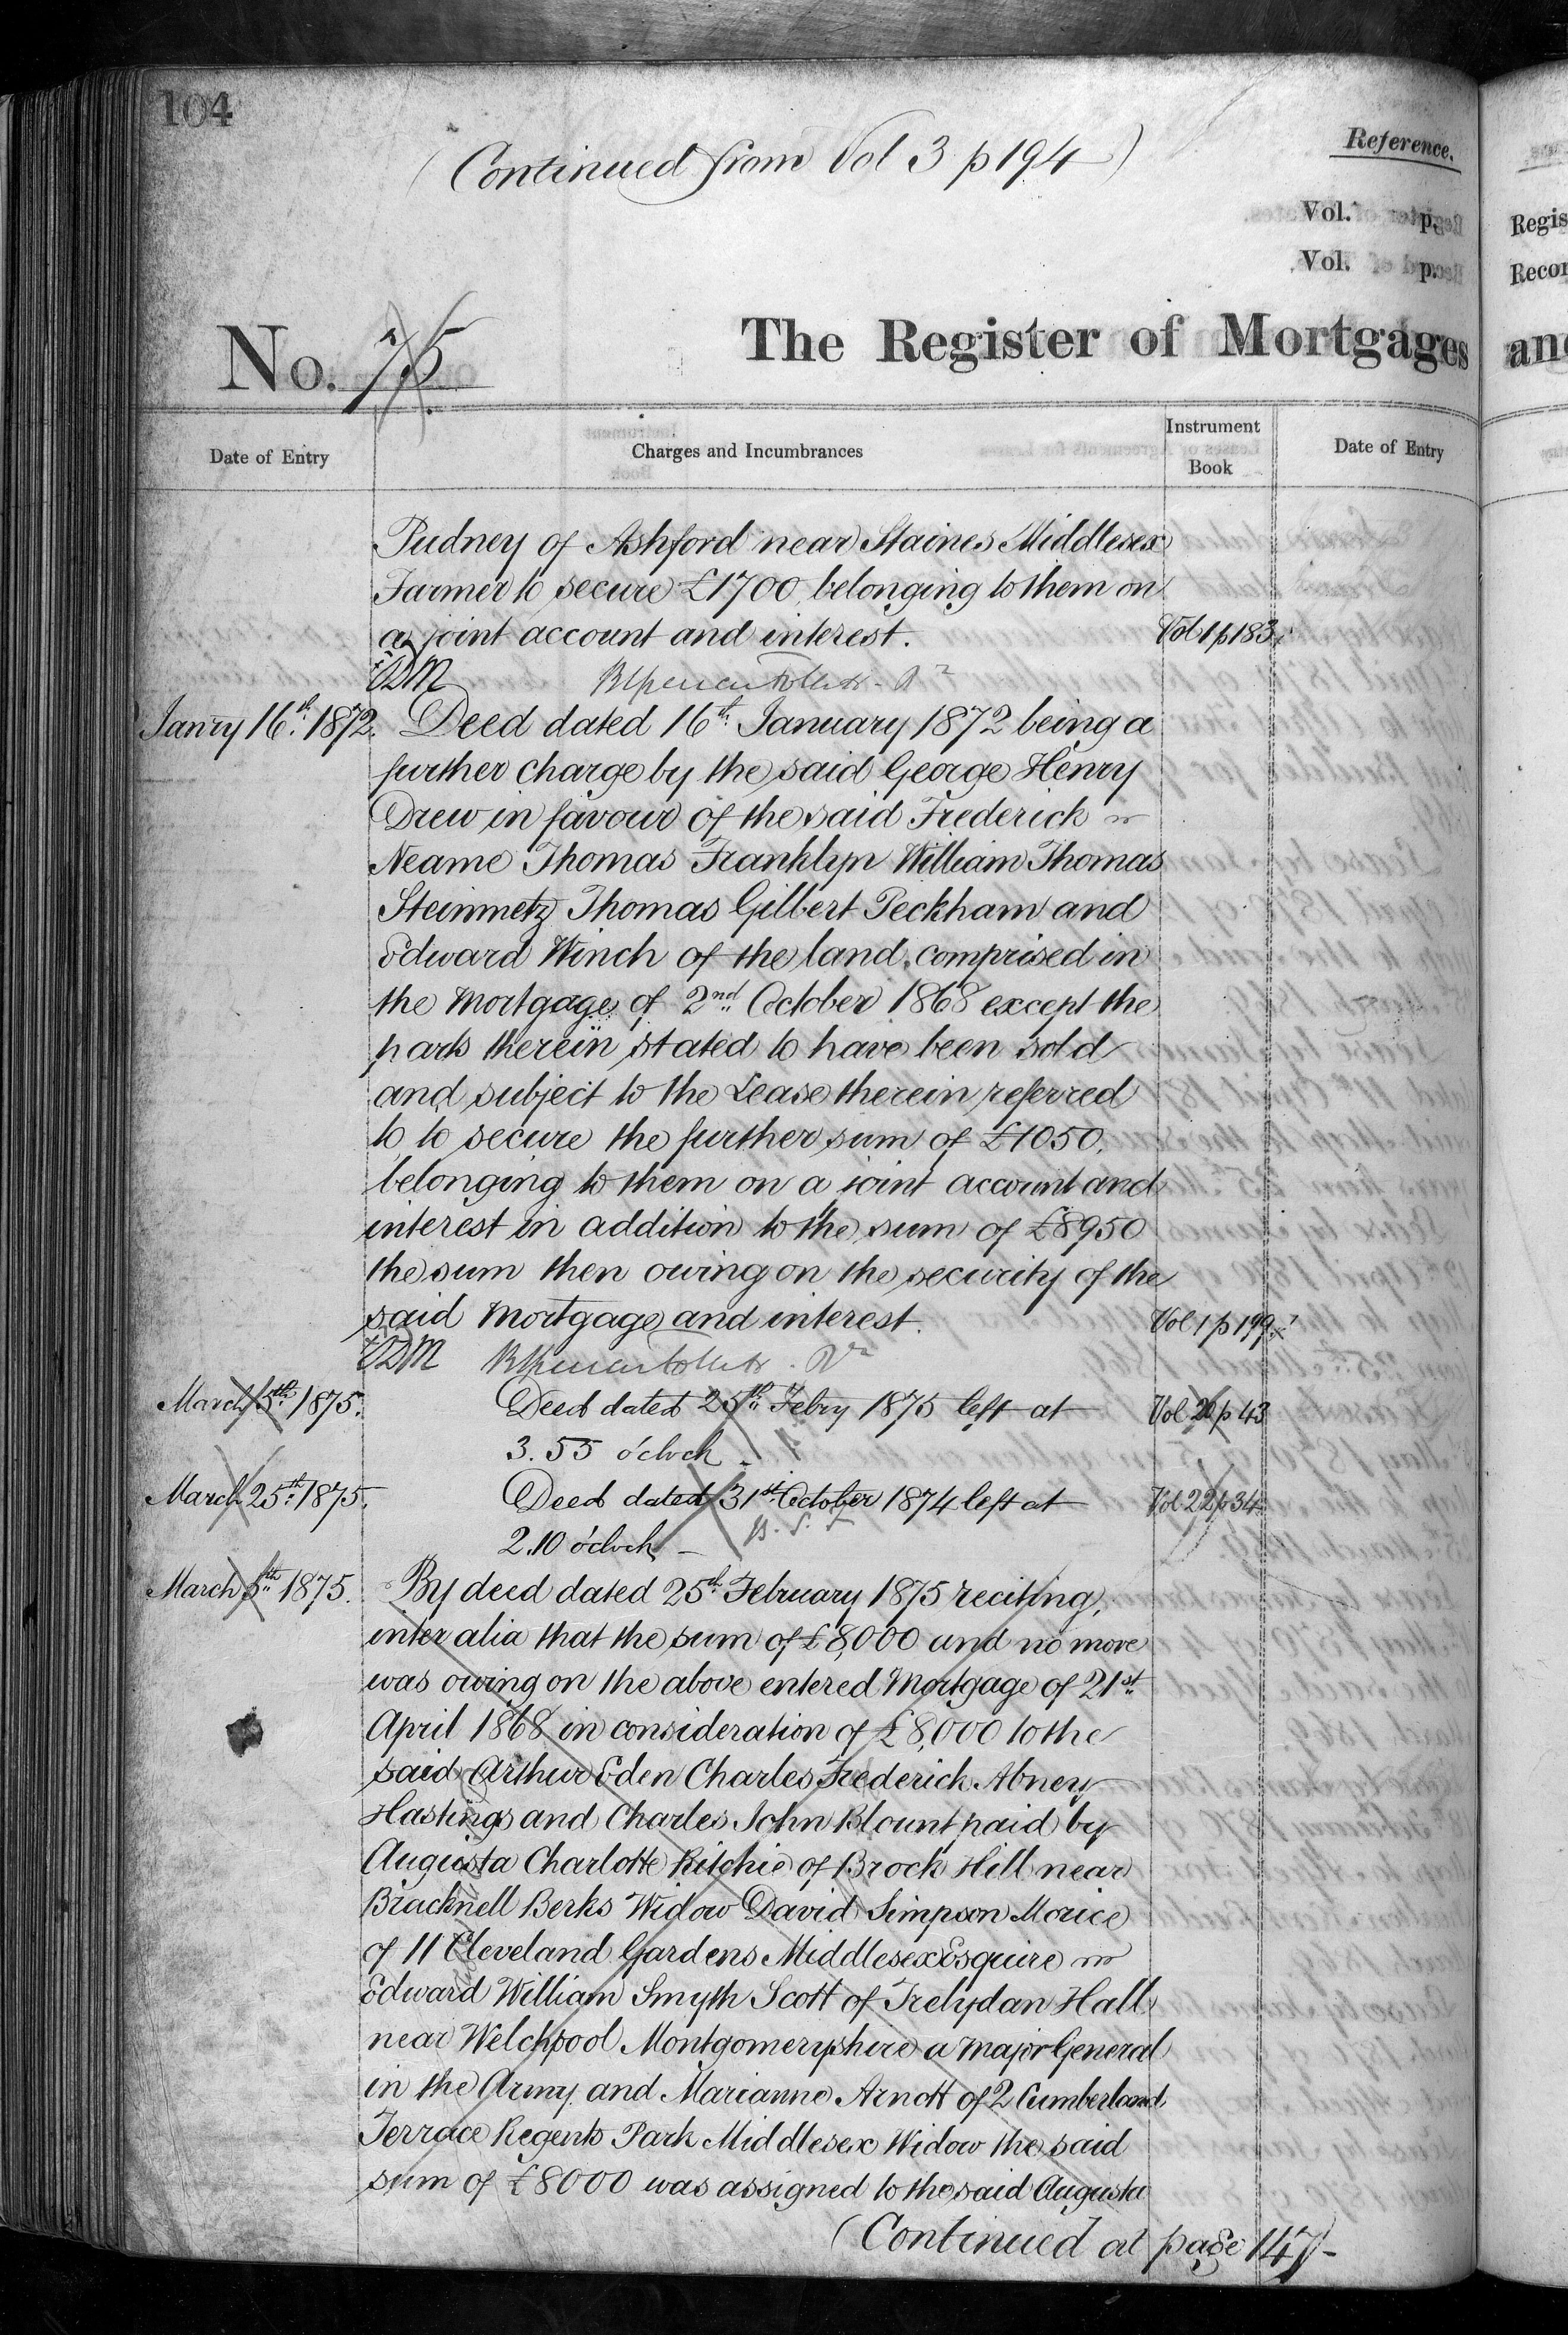 104
(Continued from Vol 3 p 194)
Reference.
Vol. p.
Vol. p.
Regis
Recor
No. 75
The Register of Mortgages
and
Date of Entry
Charges and Incumbrances
Instrument
Book
Date of Entry
Pudney of Ashford near Staines Middlesex
Farmer to secure £1700 belonging to them on
a joint account and interest. Vol 1 p 183
JDM
Janry 16th. 1872. Deed dated 16th January 1872 being a
further charge by the said George Henry
Drew in favour of the said Frederick
Neame Thomas Franklyn William Thomas
Steinmetz Thomas Gilbert Peckham and
Edward Winch of the land comprised in
the Mortgage of 2nd October 1868 except the
parts therein stated to have been sold
and subject to the Lease therein referred
to to secure the further sum of £1050.
belonging to them on a joint account and
interest in addition to the sum of £8950
the sum then owing on the security of the
said Mortgage and interest. Vol 1 p 199
JDM
March 5th. 1875. Deed dated 25th Febry 1875 left at Vol 20 p 43
3.55 o'clock
March 25th. 1875. Deed dated 31st October 1874 left at Vol 22 p 34
2.10 o'clock
March 5th 1875. By deed dated 25th February 1875 reciting,
inter alia that the sum of £8,000 and no more
was owing on the above entered Mortgage of 21st
April 1868 in consideration of £8,000 to the
said Arthur Eden Charles Frederick Abney
Hastings and Charles John Blount paid by
Augusta Charlotte Ritchie of Brock Hill near
Bracknell Berks Widow David Simpson Morice
of 11 Cleveland Gardens Middlesex Esquire
Edward William Smyth Scott of Trelydan Hall
near Welchpool Montgomeryshire a Major General
in the Army and Marianne Arnott of 2 Cumberland
Terrace Regents Park Middlesex Widow the said
sum of £8000 was assigned to the said Augusta
(Continued at page 147